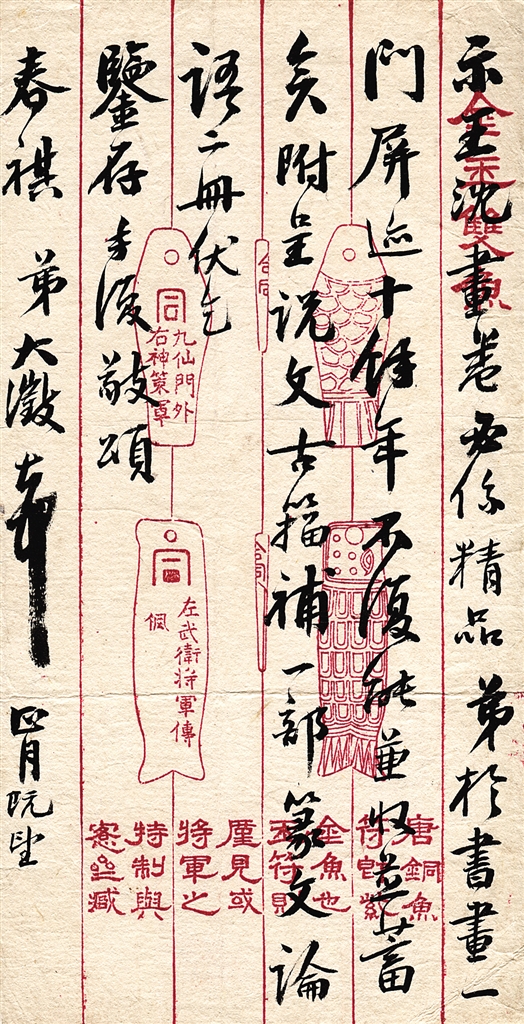 示王沈畫卷必係精品弟於書畫一
門屏迹十餘年不復能兼收並蓄
矣附呈說文古籀補一部篆文論
語二冊伏乞
鑒存手復敬頌
春祺 弟大澂
四月既望
金玉雙魚
合同
同
九仙門外
右神策軍
合同
同
左武衛將軍傳
佩
唐銅魚
符紫
金魚也
玉符則
厪見或
將軍之
特制與
愙齋藏